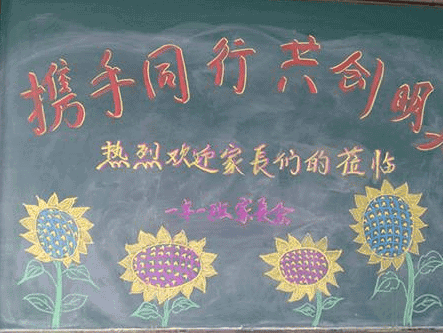 携手同行共创明
热烈欢迎家長们的莅临
一年一班家長会